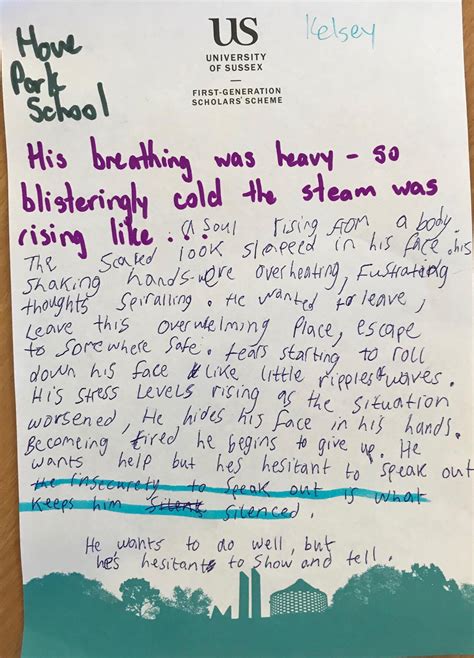 Hove
Park
School
US
UNIVERSITY
OF SUSSEX
FIRST-GENERATION
SCHOLARS' SCHEME
Kelsey
His breathing was heavy - so
blisteringly cold the steam was
rising like .... a soul rising from a body.
The scared look slapeed in his face. his
shaking hands were overheating, Fustrateing
thoughts spiralling. He wanted to leave,
leave this overwelming place, escape
to somewhere safe. tears starting to roll
down his face like little ripples & waves.
His stress levels rising as the situation
worsened, He hides his face in his hands.
Becomeing tired he begins to give up. He
wants help but he's hesitant to speak out
the insecurety to speak out is what
keeps him silent silenced.
He wants to do well, but
he's hesitant to show and tell.